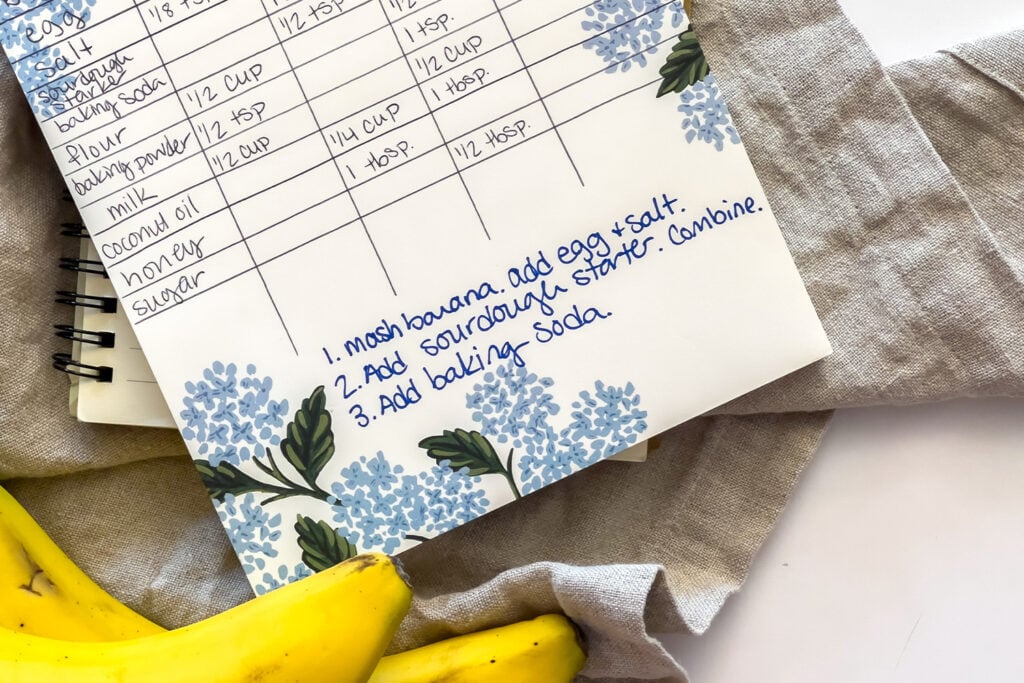 egg
salt 1/8 tsp
sourdough
starter
baking soda 1/2 tsp
flour 1/2 cup 1/2
baking powder 1/2 tsp 1 tsp.
milk 1/2 cup 1/2 cup
coconut oil 1/4 cup 1 tbsp.
honey 1 tbsp.
sugar 1/2 tbsp.
1. mash banana. add egg + salt.
2. Add sourdough starter. Combine.
3. Add baking soda.